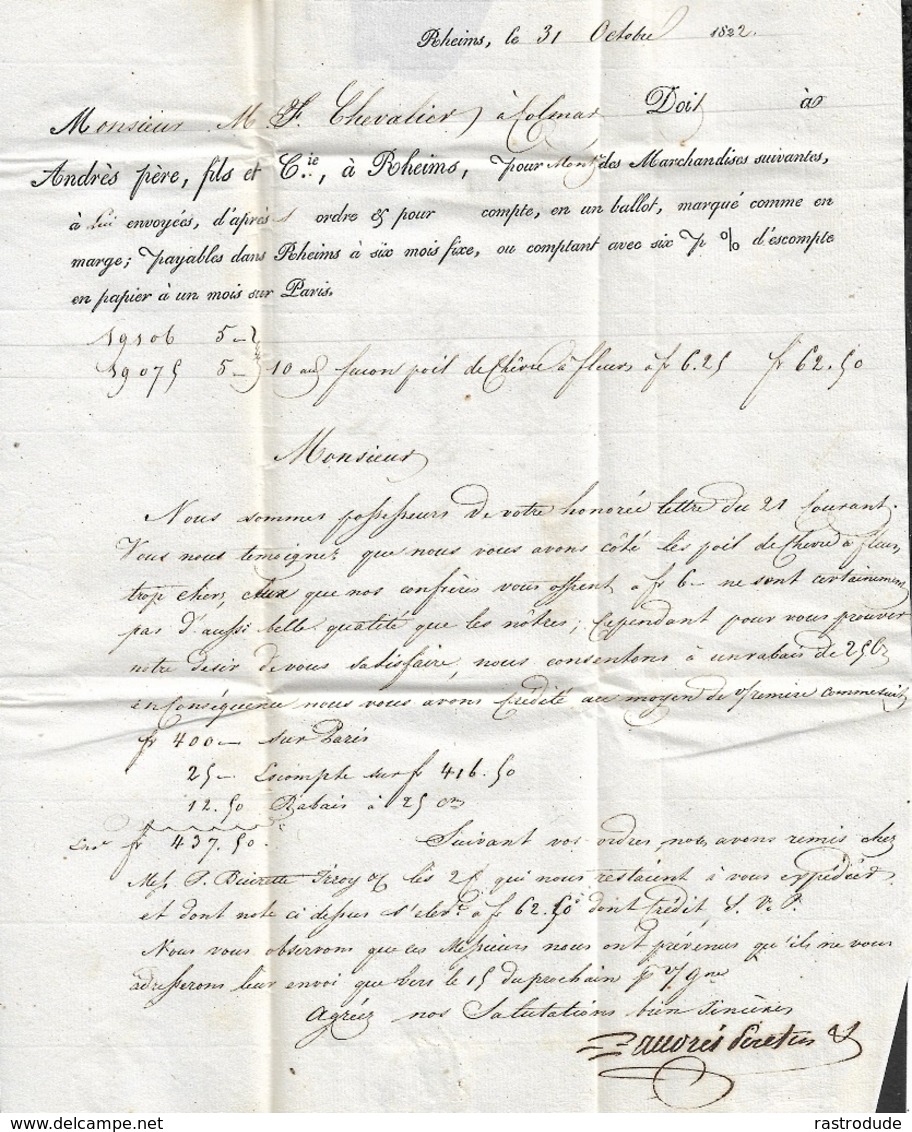 Rheims, le 31 Octobre 1822.
Monsieur M F. Chevalier à Colmar Doit à
Andrès père, fils et C.ie, à Rheims, pour Mont. des Marchandises suivantes,
à lui envoyées, d'après s ordre & pour compte, en un ballot, marqué comme en
marge; payables dans Rheims à six mois fixe, ou comptant avec six p % d'escompte
en papier à un mois sur Paris.
19106 5 -
19075 5 - 10 au façon poil de Chêvre à fleurs à f 6.25 fr 62.50
Monsieur
Nous sommes possesseurs de votre honorée lettre du 21 Courant.
Vous nous temoignez que nous vous avons côté les poil de Chevre à fleurs
trop chers, ceux que nos confrères vous offrent à fr 6 - ne sont certainement
pas d'aussi belle qualité que les nôtres; Cependant pour vous prouver
notre desir de vous satisfaire, nous consentons à un rabais de 25 Cs
en Conséquence nous vous avons Crédité au moyen de v/ remise comme suit
fr 400 - sur Paris
25 - Escompte sur f 416.50
12.50 Rabais à 25 cms
Ense fr 437.50. Suivant vos ordres nous avons remis chez
Mess. les 2 f qui nous restaient à vous expédier
et dont note ci dessus s'elevt à f 62.50 dont Crédit S. V. P.
Nous vous observons que ces Messieurs nous ont prévenus qu'ils ne vous
adresserons leur envoi que vers le 15 du prochain pr v/ gne
Agréez nos Salutations bien sincères
Andrès Père fils &
www.delcampe.net
rastrodude